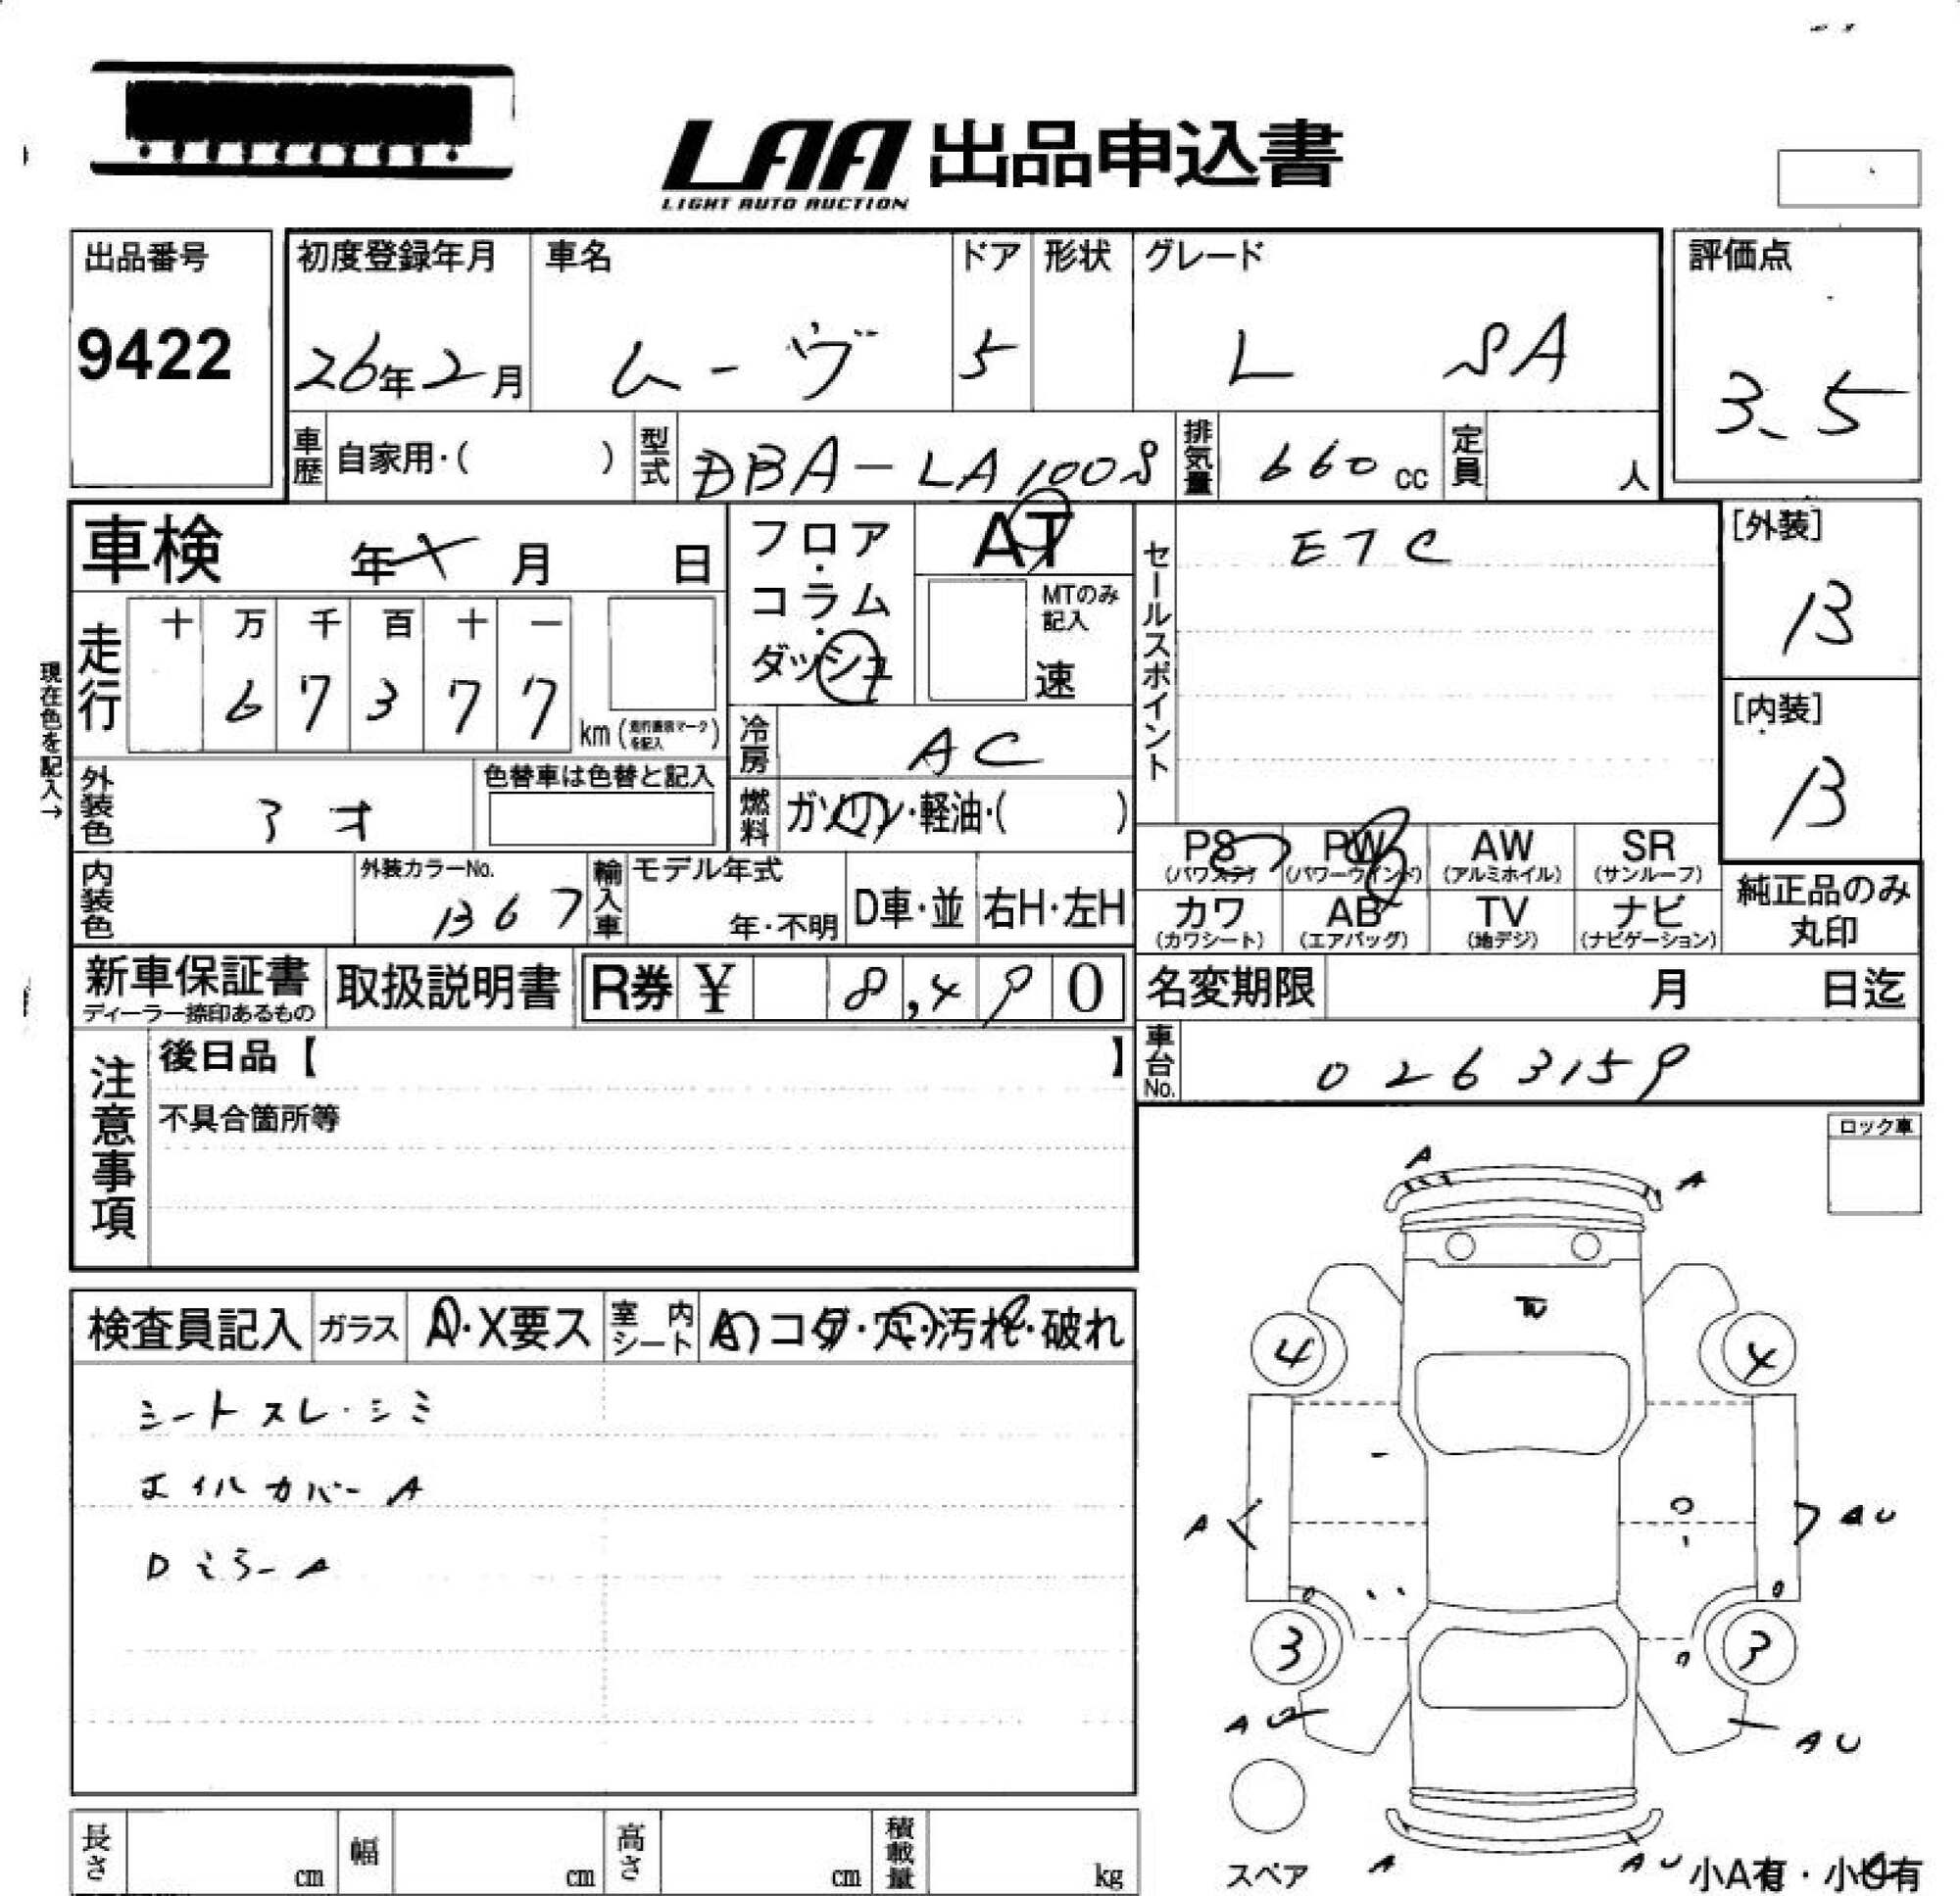 LAA 出品申込書
LIGHT AUTO AUCTION
出品番号
9422
初度登録年月
26年2月
車名
ムーヴ
ドア
5
形状
グレード
L SA
評価点
3.5
車歴 自家用・( )
型式 DBA-LA100S
排気量 660 cc
定員 人
車検 年 X 月 日
フロア・コラム・ダッシュ
AT
MTのみ記入
速
セールスポイント
ETC
[外装]
B
[内装]
B
現在色を記入→
走行
十 万 千 百 十 一
6 7 3 7 7
km
冷房 AC
外装色
アオ
色替車は色替と記入
燃料 ガソリン・軽油・( )
内装色
外装カラーNo.
B67
輸入車
モデル年式
年・不明
D車・並
右H・左H
PS (パワステ)
PW (パワーウインド)
AW (アルミホイル)
SR (サンルーフ)
カワ (カワシート)
AB (エアバッグ)
TV (地デジ)
ナビ (ナビゲーション)
純正品のみ丸印
新車保証書
ディーラー捺印あるもの
取扱説明書
R券 ¥ 8,490
名変期限 月 日迄
車台No. 0263159
注意事項
後日品【 】
不具合箇所等
ロック車
検査員記入
ガラス
A・X要ス
室内シート
A・コゲ・穴・汚れ・破れ
シートスレ・シミ
ホイルカバーA
DミラーA
A
A
4
4
A
AU
3
3
AU
AU
スペア
A
AU
小A有・小U有
長さ cm
幅 cm
高さ cm
積載量 kg